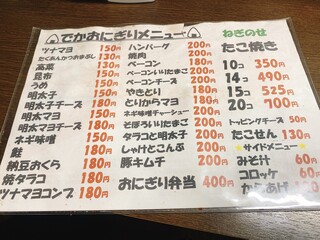 でかおにぎりメニュー
ツナマヨ 150円
たくあんかつおまぶし 130円
高菜 130円
昆布 150円
うめ 150円
明太子 150円
明太子チーズ 180円
明太マヨ 180円
明太マヨチーズ 180円
ネギ味噌 150円
鮭 180円
納豆おくら 180円
焼タラコ 180円
ツナマヨコンブ 180円
ハンバーグ 200円
焼肉 200円
ベーコン 180円
ベーコンいりたまご 200円
ベーコンチーズ 200円
やきとり 180円
とりからマヨ 180円
ネギ味噌チャーシュー 200円
そぼろいりたまご 200円
タラコと明太子 200円
しゃけとこんぶ 200円
豚キムチ 200円
おにぎり弁当 400円
ねぎのせ
たこ焼き
10コ 350円
14コ 490円
15コ 525円
20コ 700円
トッピングチーズ 50円
たこせん 130円
★サイドメニュー★
みそ汁 60円
コロッケ 60円
からあげ